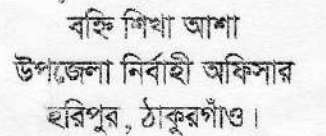 বহ্নি শিখা আশা
উপজেলা নির্বাহী অফিসার
হরিপুর, ঠাকুরগাঁও।